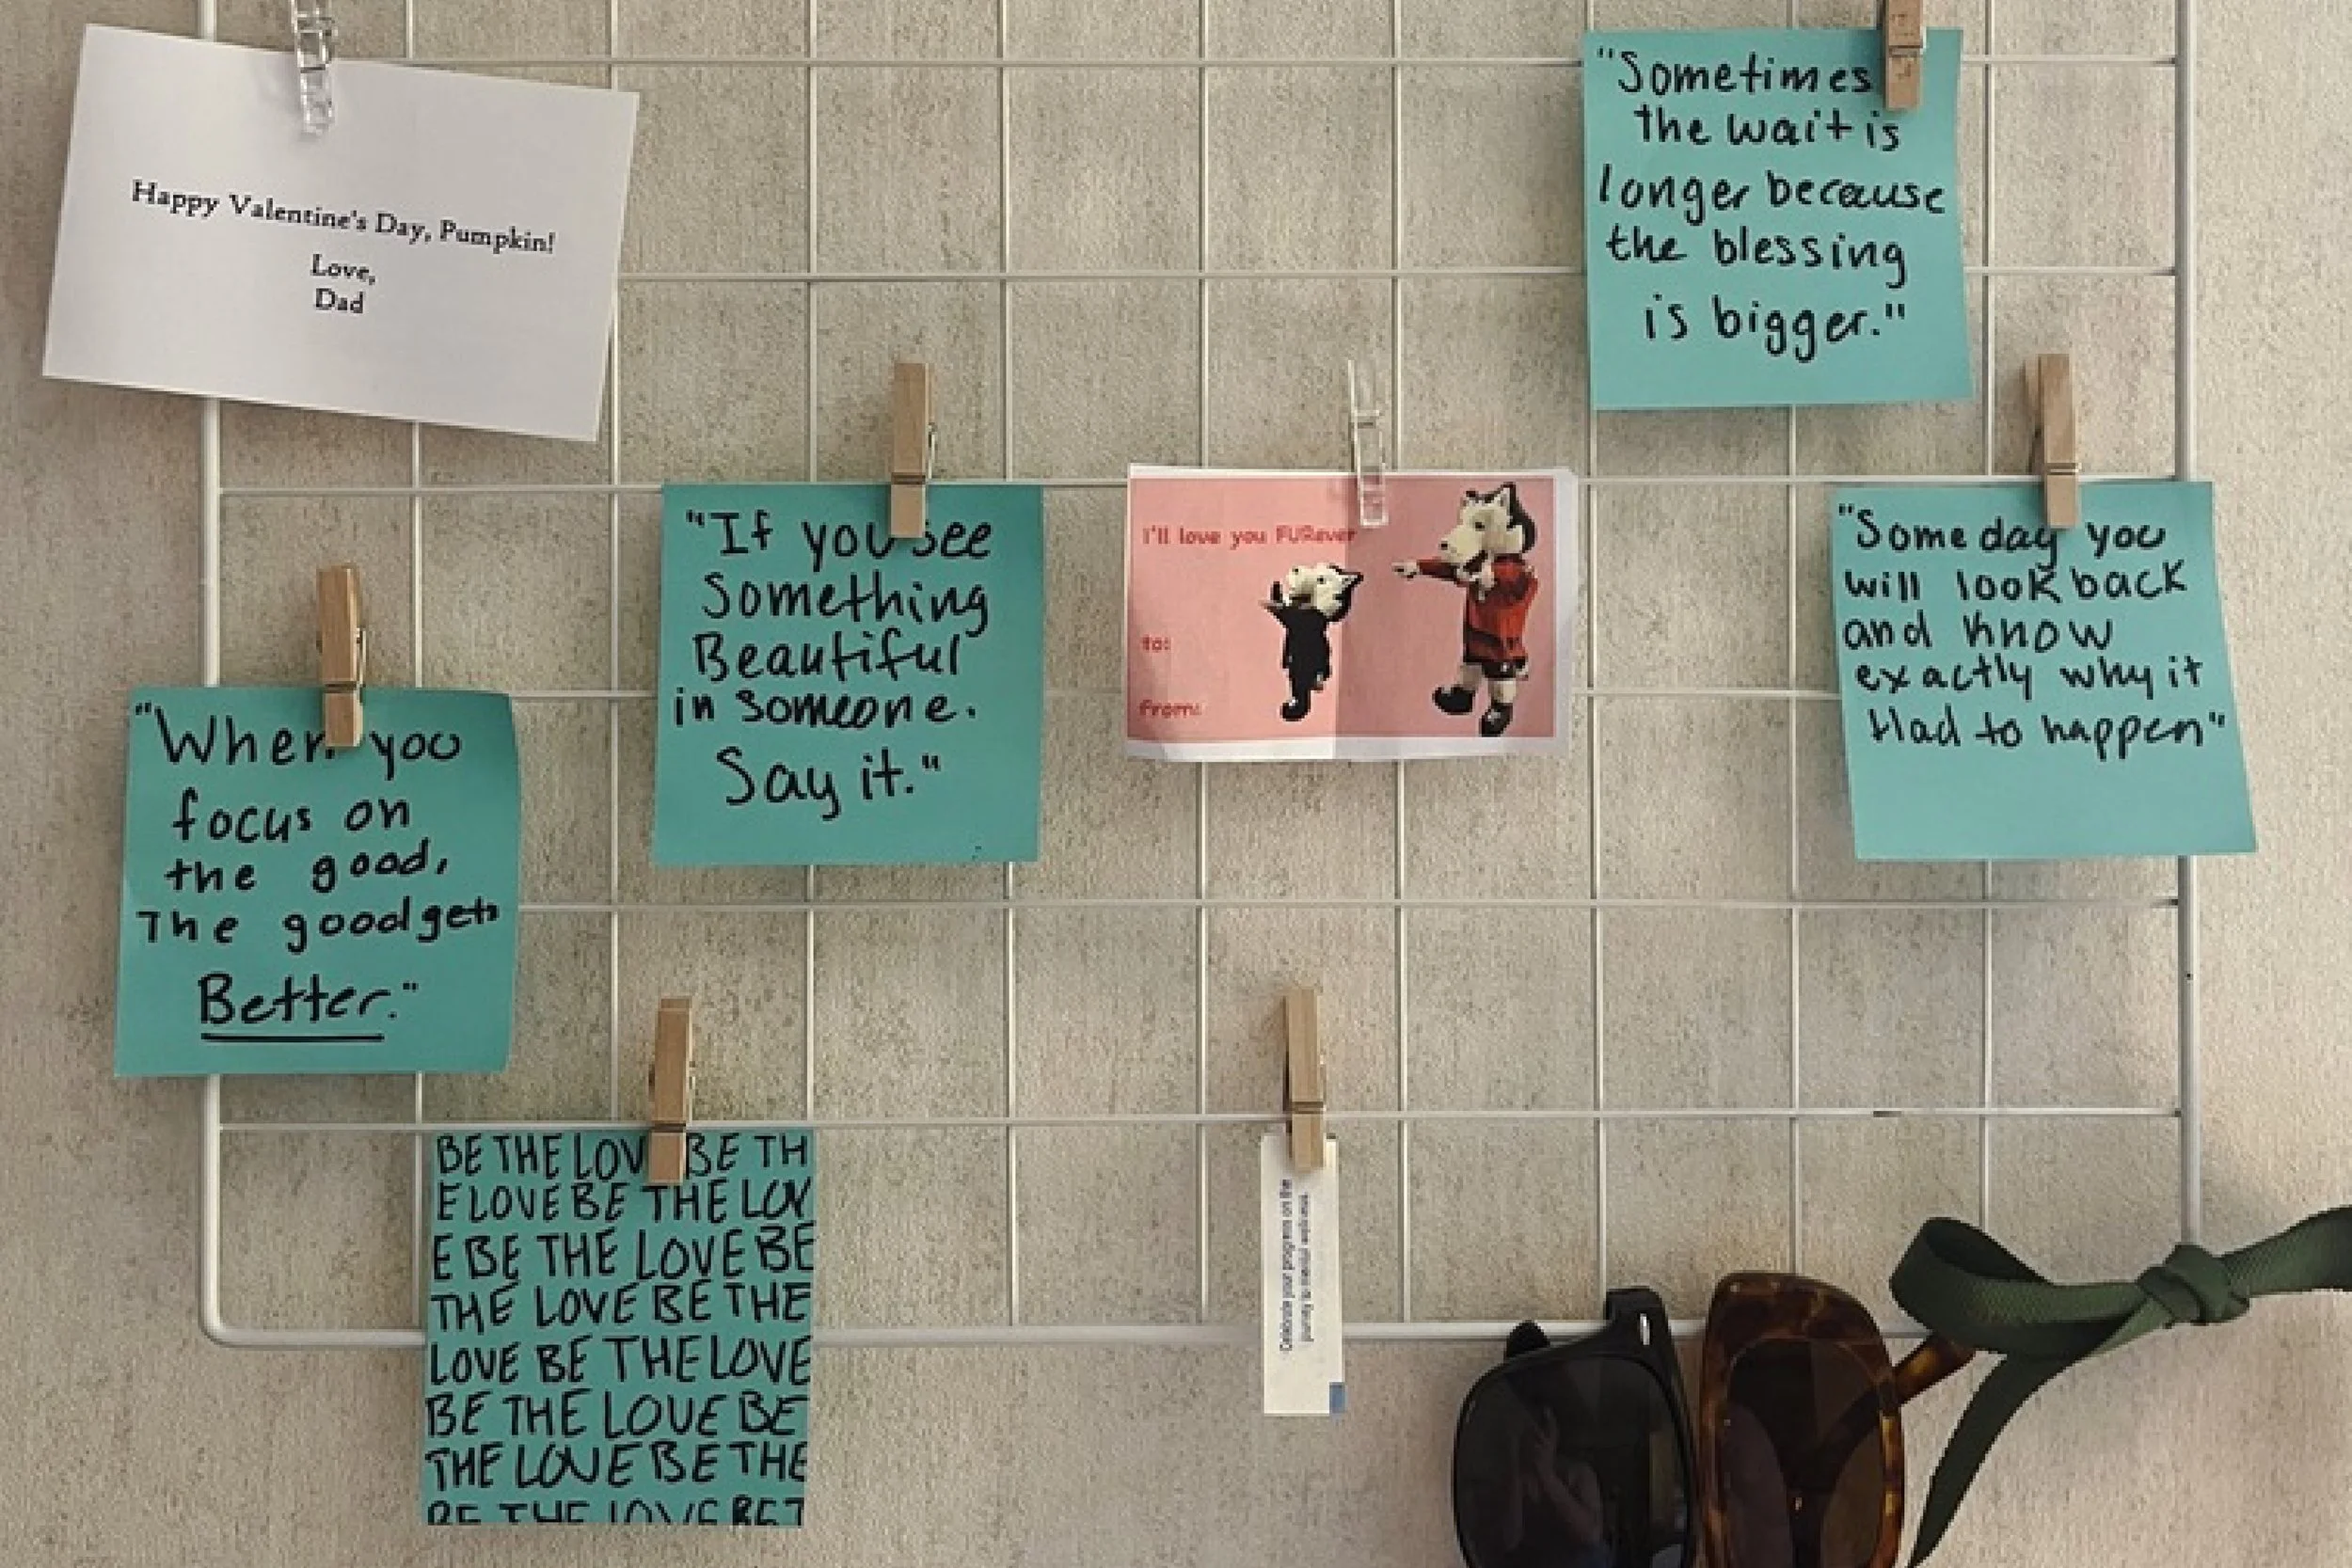 Happy Valentine's Day, Pumpkin!
Love,
Dad
"Sometimes
the wait is
longer because
the blessing
is bigger."
"If you see
Something
Beautiful
in someone.
Say it."
I'll love you FURever
to:
from:
"Someday you
will look back
and know
exactly why it
Had to happen"
"When you
focus on
the good,
The good gets
Better."
BE THE LOV BE TH
E LOVE BE THE LOV
E BE THE LOVE BE
THE LOVE BE THE
LOVE BE THE LOVE
BE THE LOVE BE
THE LOVE BE THE
BE THE LOVE BET
Celebrate your progress on the
journey to mental wellness.